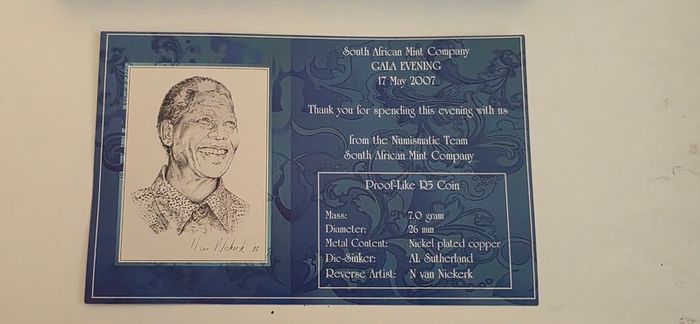 South African Mint Company
GALA EVENING
17 May 2007
Thank you for spending this evening with us
from the Numismatic Team
South African Mint Company
Proof-Like R5 Coin
Mass: 7.0 gram
Diameter: 26 mm
Metal Content: Nickel plated copper
Die-Sinker: AL Sutherland
Reverse Artist: N van Niekerk